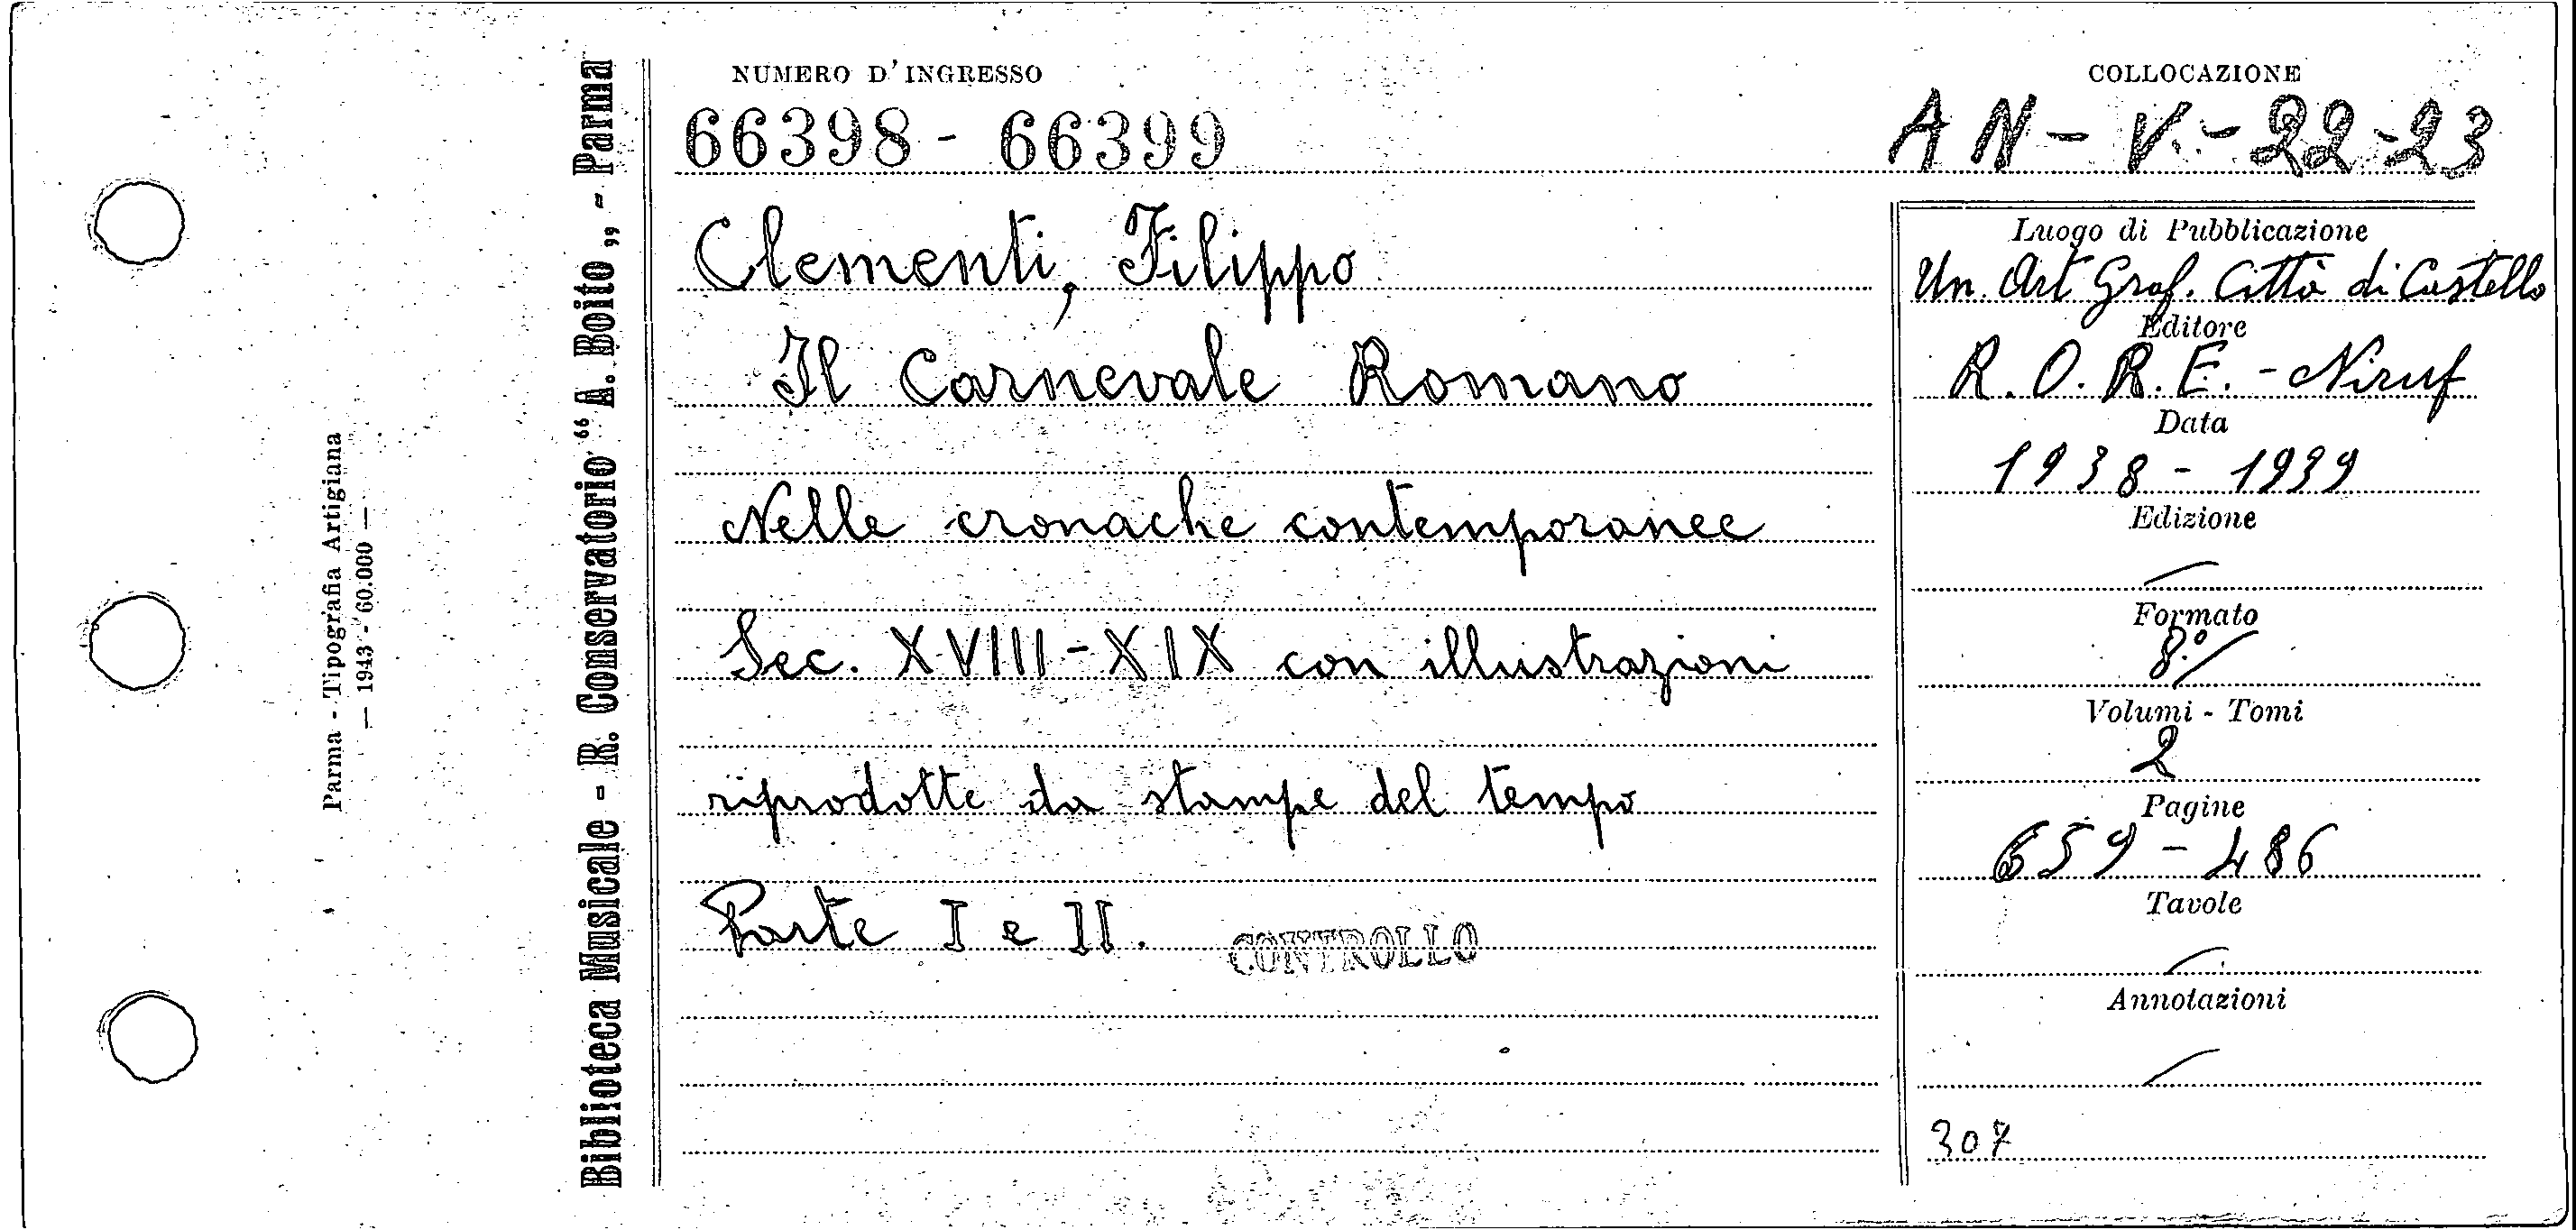 Parma - Tipografia Artigiana
— 1943 - 60.000 —
Biblioteca Musicale - R. Conservatorio “ A. Boito „ - Parma
NUMERO D'INGRESSO
66398 - 66399
COLLOCAZIONE
AN - V. - 22-23
Clementi, Filippo
Il Carnevale Romano
Nelle cronache contemporanee
Sec. XVIII - XIX con illustrazioni
riprodotte da stampe del tempo
Parte I e II.
CONTROLLO
Luogo di Pubblicazione
Un. Art Graf. Città di Castello
Editore
R.O.R.E. - Niruf
Data
1938 - 1939
Edizione
Formato
8°
Volumi - Tomi
2
Pagine
659 - 486
Tavole
Annotazioni
307